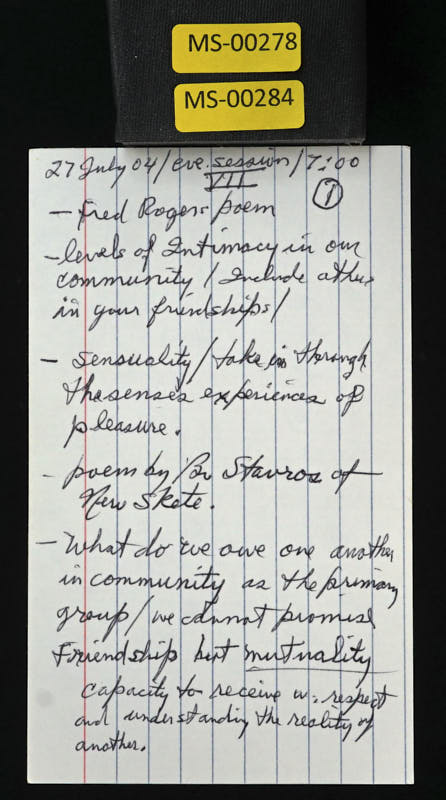 MS-00278
MS-00284
27 July 04/eve. session/7:00
VII
1
- Fred Rogers poem
- levels of Intimacy in our
community / Include others
in your friendships/
- sensuality / take in through
the senses experiences of
pleasure.
- poem by Br Stavros of
New Skete.
- What do we owe one another
in community as the primary
group/we cannot promise
Friendship but mutuality
capacity to receive w. respect
and understanding the reality of
another.